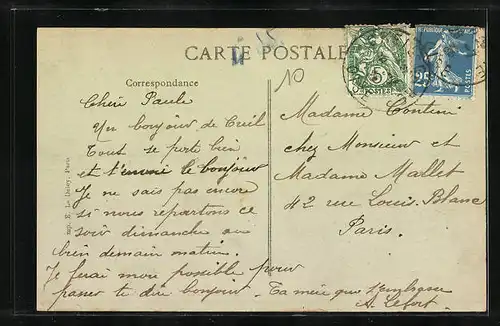 CARTE POSTALE
Correspondance
Chère Paule
Un bonjour de Creil
Tout se porte bien
et t'envoie le bonjour
Je ne sais pas encore
si nous repartons ce
soir dimanche ou
bien demain matin.
Je ferai mon possible pour
passer te dire bonjour. Ta mère que t'embrasse
A. Lefort.
Madame Contini
chez Monsieur et
Madame Mallet
42 rue Louis-Blanc
Paris.
10
5
POSTES
25
E. Le Deley, Paris